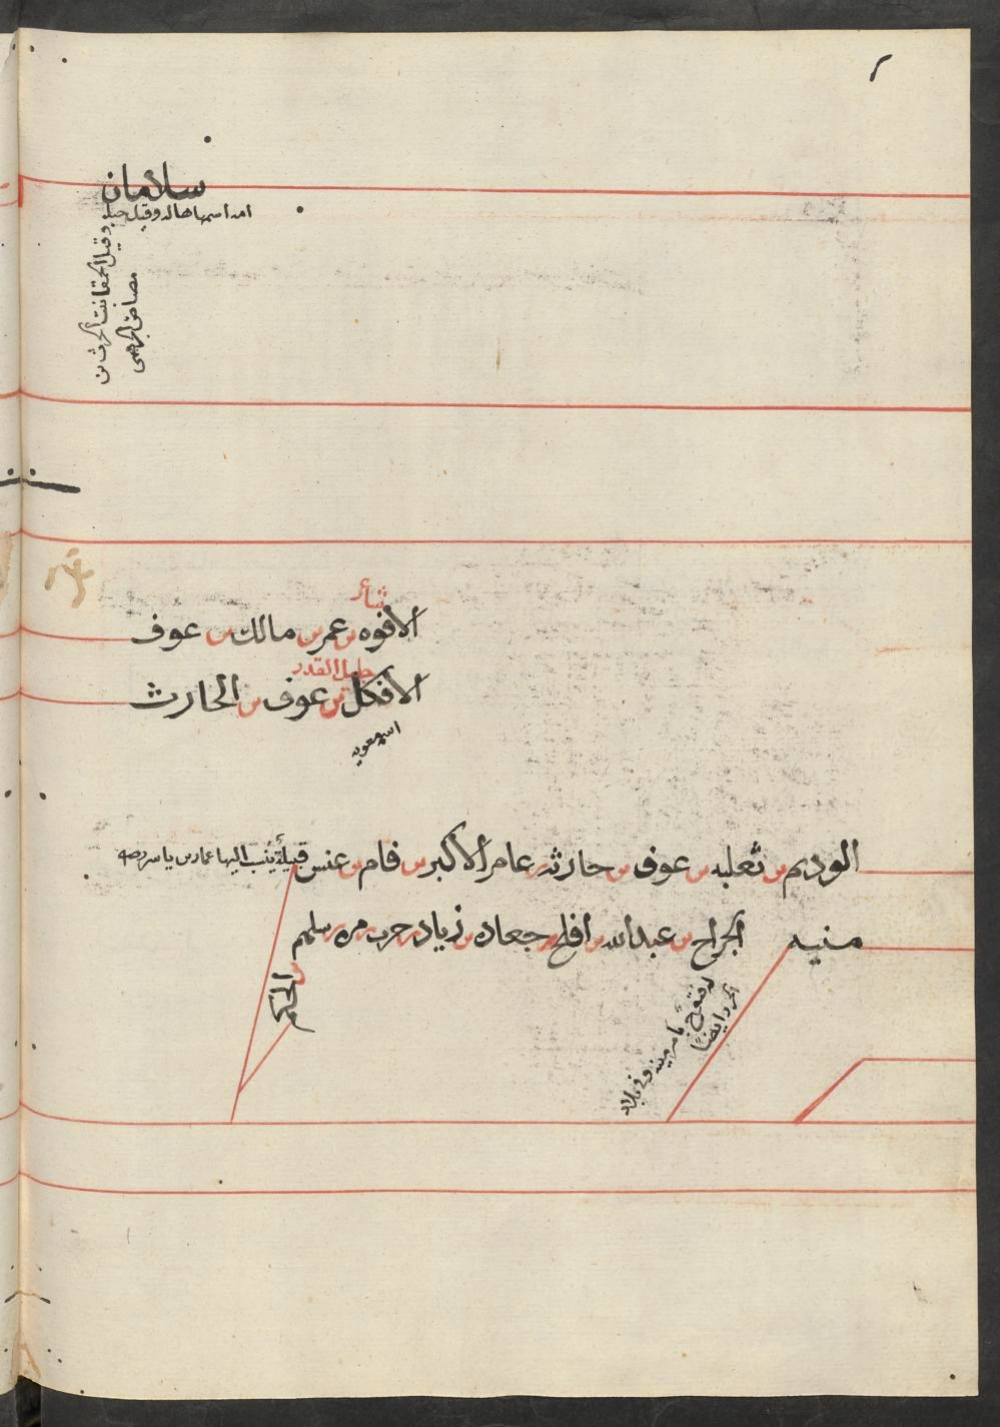 ٢
سلامان
امه اسمها هاله وقيل
وقيل الحمقا بنت الحرث بن
مضاض الجرهمى
شاعر
الافوه بن عمر بن مالك بن عوف
جليل القدر
الافكل بن عوف بن الحارث
اسمه معويه
الوديم بن ثعلبه بن عوف بن حارثه بن عامر الاكبر بن فام بن عنس قبيلة ينسب اليها عمار بن ياسر
منبه
الجراح بن عبد الله بن افلح بن جعاده بن زياد بن حرب بن مره بن سلهم
بن الحكم
له فتوح